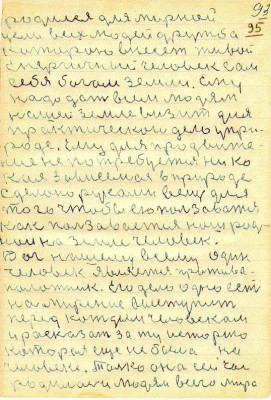 93
95
родился для мирной
цели всех людей дружба
которою внесет живой
энергичный человек сам
себя богом земли. Ему
надо дать всим людям
нашей земле визит для
практического дело упри
роде. Ему для продвиже
ние не потребуется ни ко
кая зависемая в природе
сделано руками вещ для
того чтобы ею ползоватся
как ползовается наш род
ной на земле человек.
Вот нашему всему один
человек является противо
полотник. Его дело одно сест
на мирение выступит
перед каждым человекам
и расказат за ту историю
которая еще не была на
человеке. Толко она сейчас
родилас и людям всего мира